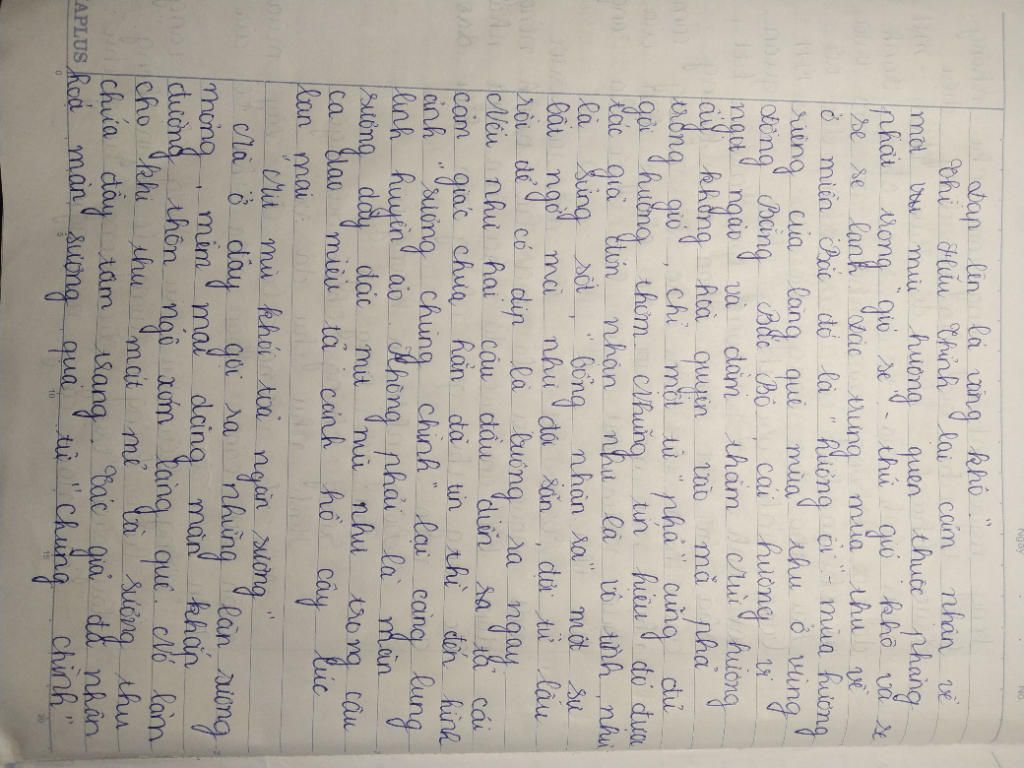 Đạp lên lá vàng khô".
Thì Hữu Thỉnh lại cảm nhận về
một mùi hương quen thuộc phảng
phất trong "gió se - thứ gió khô và se
se se lạnh. Đặc trưng mùa thu về
ở miền Bắc đó là "hương ổi" - mùi hương
riêng của làng quê mùa thu ở vùng
đồng Bằng Bắc Bộ, cái hương vị
ngọt ngào và đằm thắm. Mùi hương
ấy không hòa quyện vào mà phả
trong gió, chỉ một từ "phả" cũng đủ
gợi hương thơm. Những tín hiệu đó đưa
tác giả đón nhận như là vô tình, như
là sửng sốt, "bỗng nhận ra" một sự
bất ngờ mà như đã sẵn, đợi từ lâu
rồi để có dịp là buông ra ngay.
Nếu như hai câu đầu diễn ra từ cái
cảm giác chưa hẳn đã tin thì đến hình
ảnh "sương chùng chình" lại càng lung
linh huyền ảo. Không phải là màn
sương dầy đặc mịt mù như trong câu
ca dao miêu tả cảnh hồ cây lúc
lan mai:
"Mịt mù khói tỏa ngàn sương"
Mà ở đây gợi ra những làn sương
mỏng, mềm mại dăng màn khắp
đường thôn ngõ xóm làng quê. Nó làm
cho khí thu mát mẻ và sương thu
chứa đầy tâm trạng. Tác giả đã nhân
hoá màn sương qua từ "chùng chình"
APLUS
0 5 10 15 20